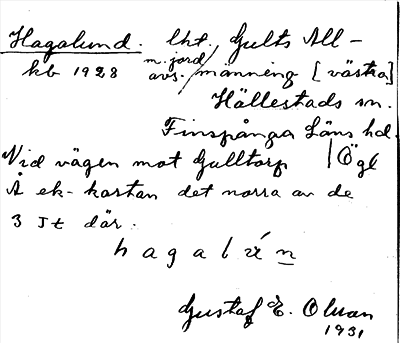 Hagalund. lht. Gults All-
m. jord
kb 1928 avs. / männing [västra]
Hällestads sn.
Finspånga Läns hd.
Vid vägen mot Gulltorp / Ögl
Å ek-kartan det norra av de
3 st där.
h a g a l ú n
Gustaf E. Olsson
1931